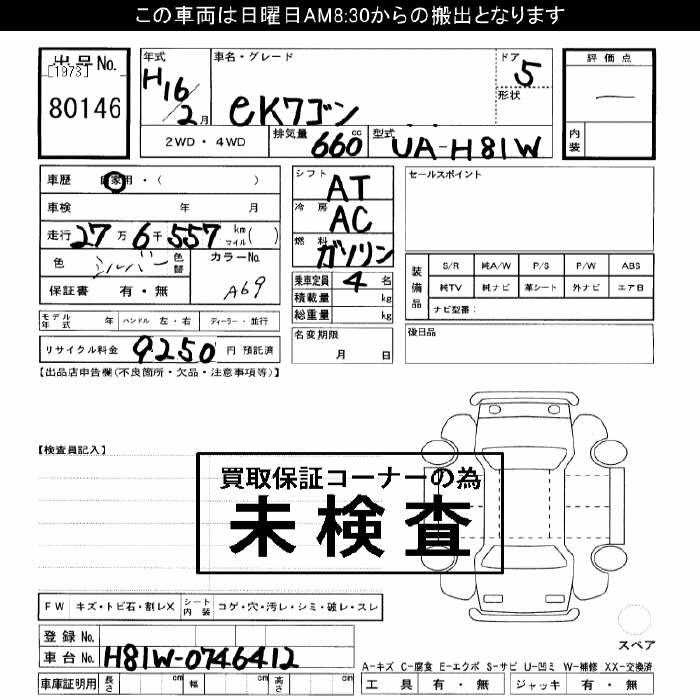 この車両は日曜日AM8:30からの搬出となります
出品No.
[1973]
80146
年式
H16/2月
車名・グレード
eKワゴン
ドア
5
形状
評価点
内装
2WD・4WD
排気量
660cc
型式
UA-H81W
車歴 自家用・( )
車検 年 月
走行 27万6千557 km マイル( )
色 シルバー 色替
カラーNo. A69
保証書 有・無
モデル年式 年 ハンドル 左・右 ディーラー・並行
リサイクル料金 9250 円 預託済
シフト AT
冷房 AC
燃料 ガソリン
乗車定員 4 名
積載量 kg
総重量 kg
名変期限
月 日
セールスポイント
装備品
S/R 純A/W P/S P/W ABS
純TV 純ナビ 革シート 外ナビ エアB
ナビ型番:
後日品
【出品店申告欄(不良箇所・欠品・注意事項等)】
【検査員記入】
買取保証コーナーの為
未検査
FW キズ・トビ石・割レX シート内装 コゲ・穴・汚レ・シミ・破レ・スレ
登録No.
車台No. H81W-0746412
車庫証明用 長さ cm 幅 cm 高さ cm
スペア
A-キズ C-腐食 E-エクボ S-サビ U-凹ミ W-補修 XX-交換済
工具 有・無 ジャッキ 有・無